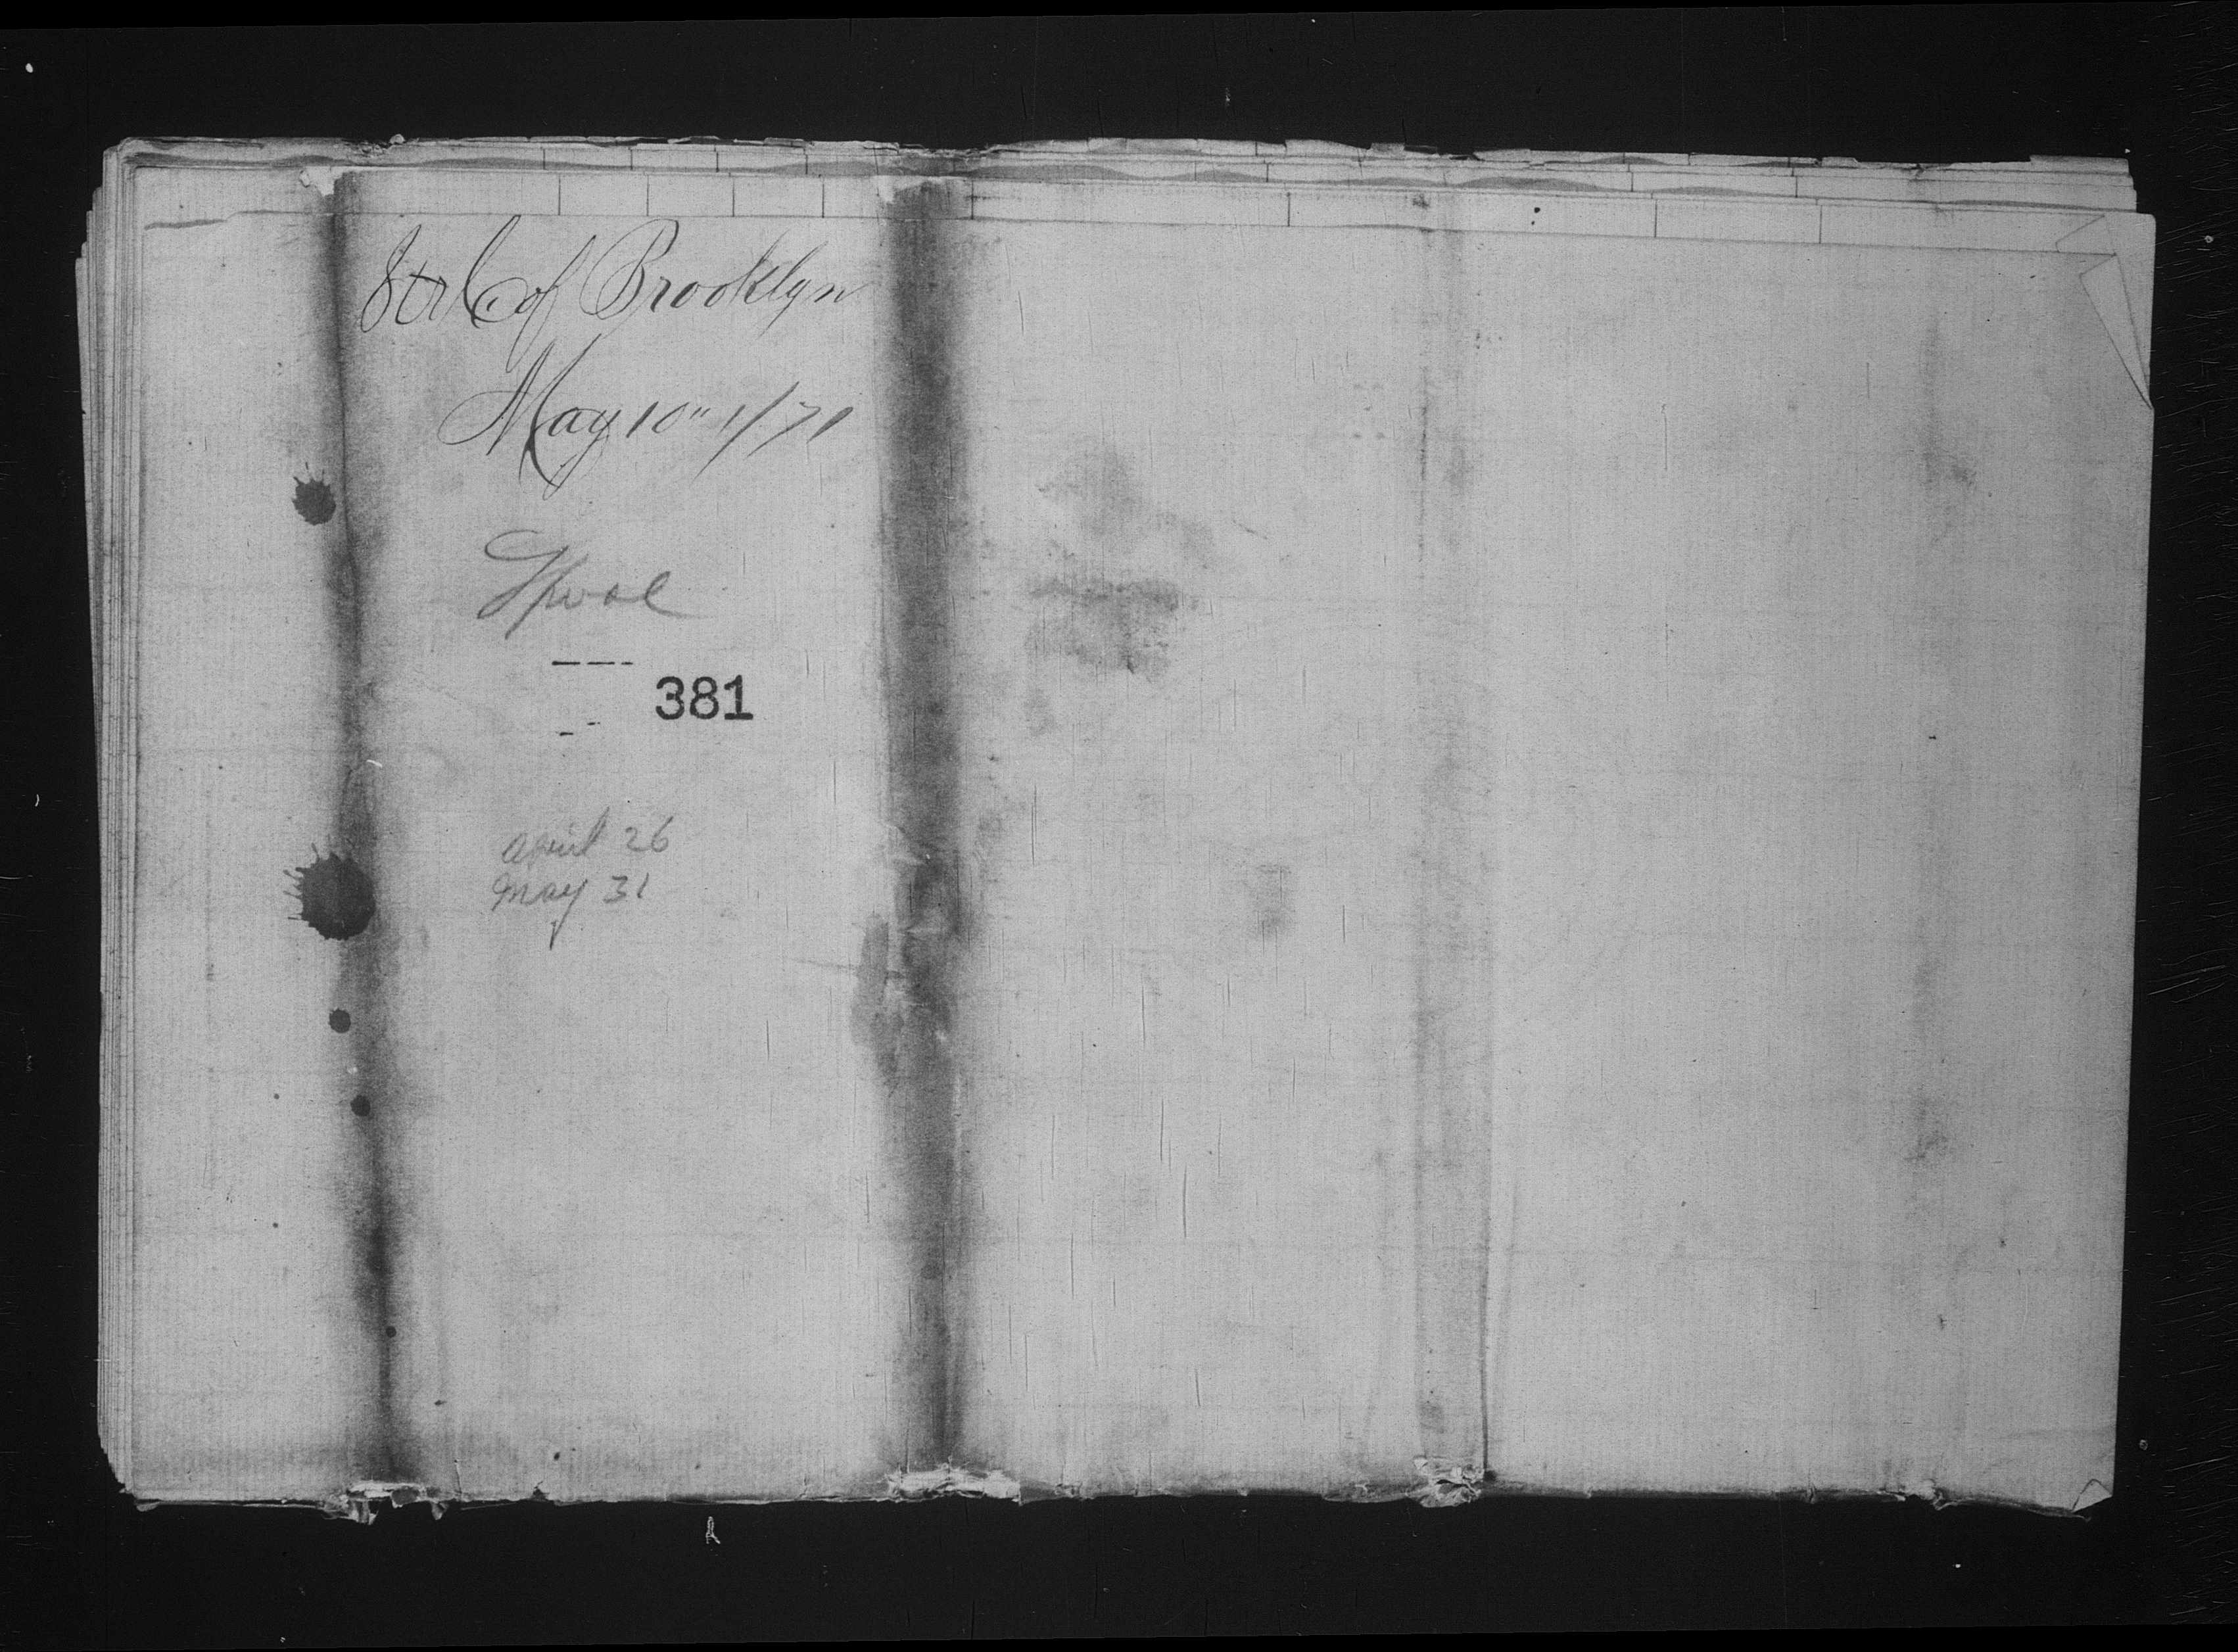 Str C of Brooklyn
May 10" 1/71
Lpool
381
April 26
May 31